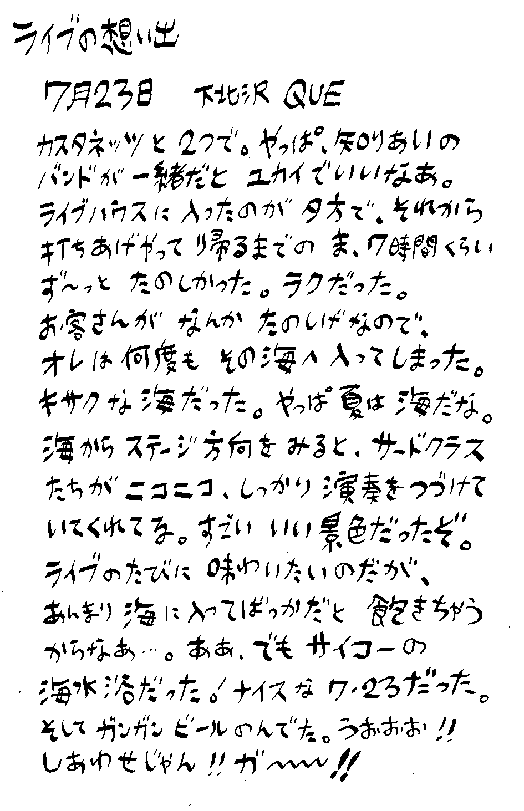 ライブの想い出
7月23日 下北沢 QUE
カスタネッツと2つで。やっぱ、知りあいの
バンドが一緒だと ユカイでいいなあ。
ライブハウスに入ったのが夕方で、それから
打ちあげやって帰るまでの ま、7時間くらい
ず〜っと たのしかった。ラクだった。
お客さんが なんか たのしげなので、
オレは何度も その海へ入ってしまった。
キサクな海だった。やっぱ夏は海だな。
海からステージ方向をみると、サードクラス
たちがニコニコ、しっかり演奏をつづけて
いてくれてな。すごい いい景色だったぞ。
ライブのたびに 味わいたいのだが、
あんまり海に入ってばっかだと 飽きちゃう
からなあ…。ああ、でもサイコーの
海水浴だった!ナイスな7・23だった。
そしてガンガンビールのんでた。うおおお!!
しあわせじゃん!!ガ〜〜〜!!